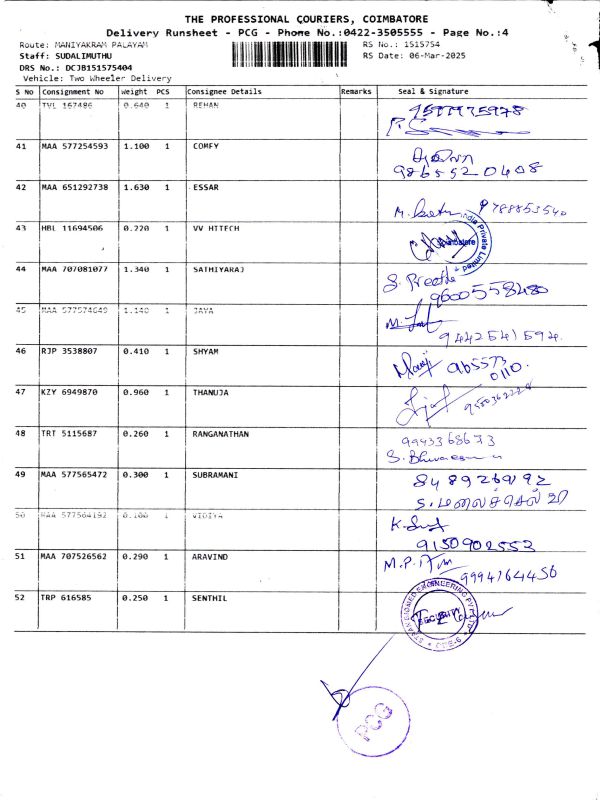 THE PROFESSIONAL COURIERS, COIMBATORE
Delivery Runsheet - PCG - Phone No.:0422-3505555 - Page No.:4
Route: MANIYAKRAM PALAYAM
RS No.: 1515754
Staff: SUDALIMUTHU
RS Date: 06-Mar-2025
DRS No.: DCJB151575404
Vehicle: Two Wheeler Delivery
S No Consignment No Weight PCS Consignee Details Remarks Seal & Signature
40 TVL 167486 0.640 1 REHAN
41 MAA 577254593 1.100 1 COMFY
9865520408
42 MAA 651292738 1.630 1 ESSAR
43 HBL 11694506 0.220 1 VV HITECH
India Private Limited
44 MAA 707081077 1.340 1 SATHIYARAJ
S. Preetha
9600558480
45 MAA 577574649 1.140 1 JAYA
9442541594.
46 RJP 3538807 0.410 1 SHYAM
965573
0110.
47 KZY 6949870 0.960 1 THANUJA
48 TRT 5115687 0.260 1 RANGANATHAN
9943368673
49 MAA 577565472 0.300 1 SUBRAMANI
8489269192
S. மலைச்செல்வி
50 MAA 577564192 0.100 1 VIDIYA
9150902552
51 MAA 707526562 0.290 1 ARAVIND
9994164456
52 TRP 616585 0.250 1 SENTHIL
SECURITY
PCG